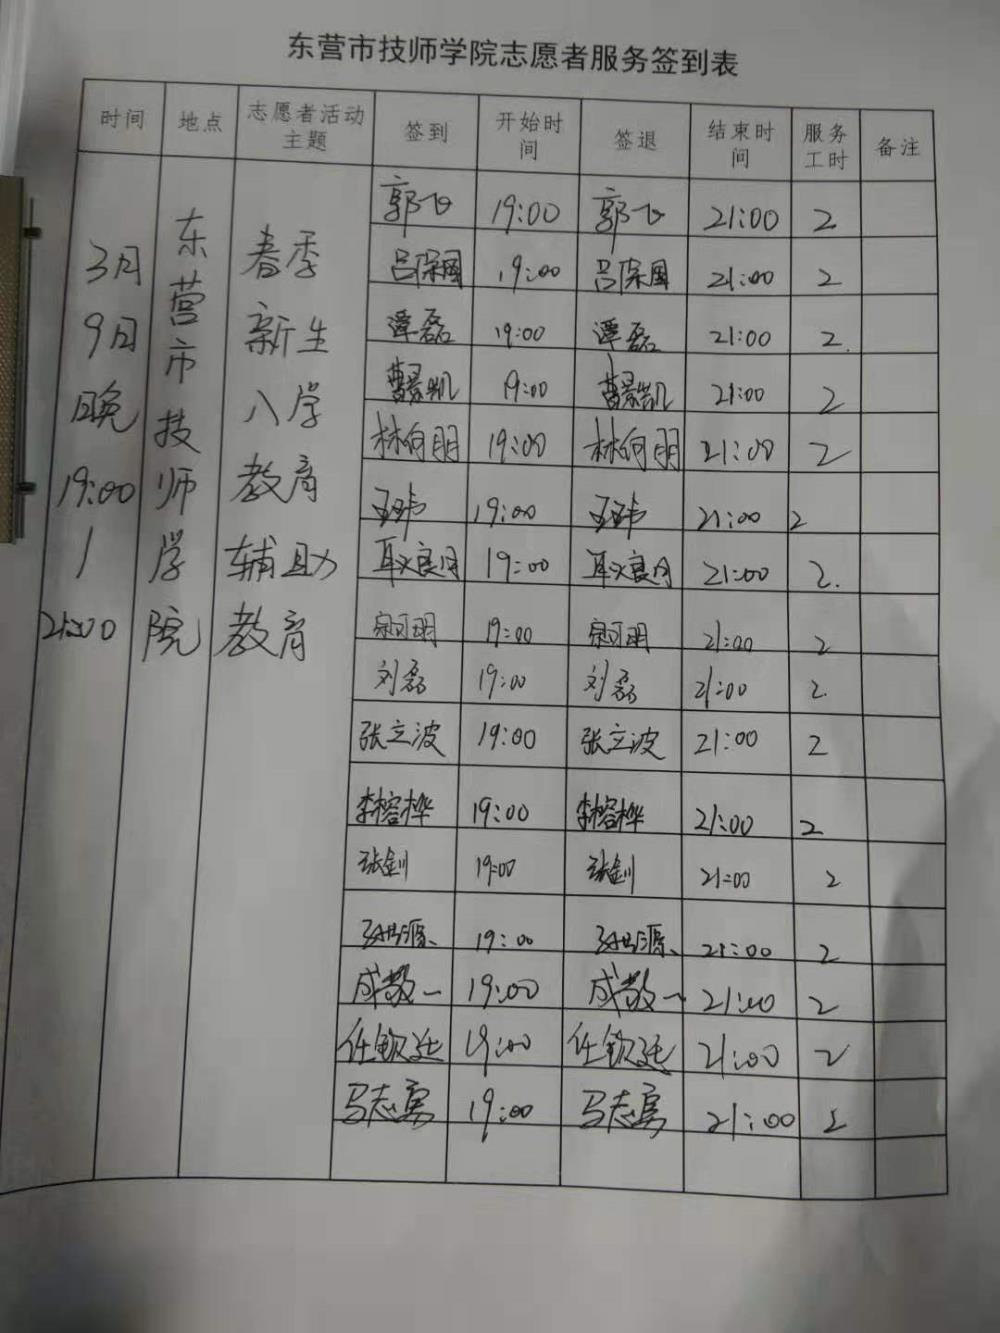 东营市技师学院志愿者服务签到表
时间 地点 志愿者活动主题 签到 开始时间 签退 结束时间 服务工时 备注
3月9日晚19:00/21:00 东营市技师学院 春季新生入学教育辅助教育
郭飞 19:00 郭飞 21:00 2
吕保国 19:00 吕保国 21:00 2
谭磊 19:00 谭磊 21:00 2.
曹景凯 19:00 曹景凯 21:00 2
林向明 19:00 林向明 21:00 2
王玮 19:00 王玮 21:00 2
19:00 21:00 2.
宗可明 19:00 宗可明 21:00 2
刘磊 19:00 刘磊 21:00 2
张立波 19:00 张立波 21:00 2
李榕桦 19:00 李榕桦 21:00 2
张钊 19:00 张钊 21:00 2
19:00 21:00 2
成敬一 19:00 成敬一 21:00 2
任钦廷 19:00 任钦廷 21:00 2
马志勇 19:00 马志勇 21:00 2